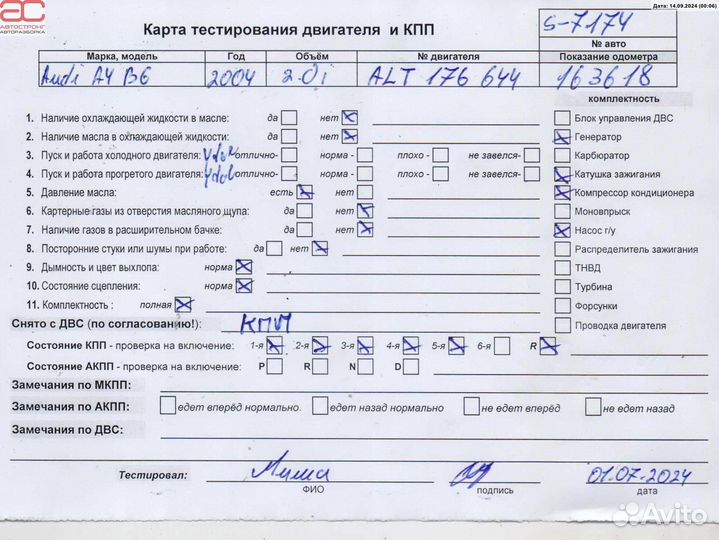 Дата: 14.09.2024 (00:06)
АС
АВТОСТРОНГ
АВТОРАЗБОРКА
Карта тестирования двигателя и КПП
S-7174
№ авто
Марка, модель Год Объём № двигателя Показание одометра
Audi A4 B6 2004 2.0i ALT 176 644 163618
комплектность
1. Наличие охлаждающей жидкости в масле: да нет Блок управления ДВС
2. Наличие масла в охлаждающей жидкости: да нет Генератор
3. Пуск и работа холодного двигателя: отлично- норма - плохо - не завелся- Карбюратор
4. Пуск и работа прогретого двигателя: отлично- норма - плохо - не завелся- Катушка зажигания
5. Давление масла: есть нет Компрессор кондиционера
6. Картерные газы из отверстия масляного щупа: да нет Моновпрыск
7. Наличие газов в расширительном бачке: да нет Насос г/у
8. Посторонние стуки или шумы при работе: да нет Распределитель зажигания
9. Дымность и цвет выхлопа: норма ТНВД
10. Состояние сцепления: норма Турбина
11. Комплектность : полная Форсунки
Снято с ДВС (по согласованию!): КПП Проводка двигателя
Состояние КПП - проверка на включение: 1-я 2-я 3-я 4-я 5-я 6-я R
Состояние АКПП - проверка на включение: P R N D
Замечания по МКПП:
Замечания по АКПП: едет вперёд нормально едет назад нормально не едет вперёд не едет назад
Замечания по ДВС:
Тестировал: 01.07.2024
ФИО подпись дата
Avito